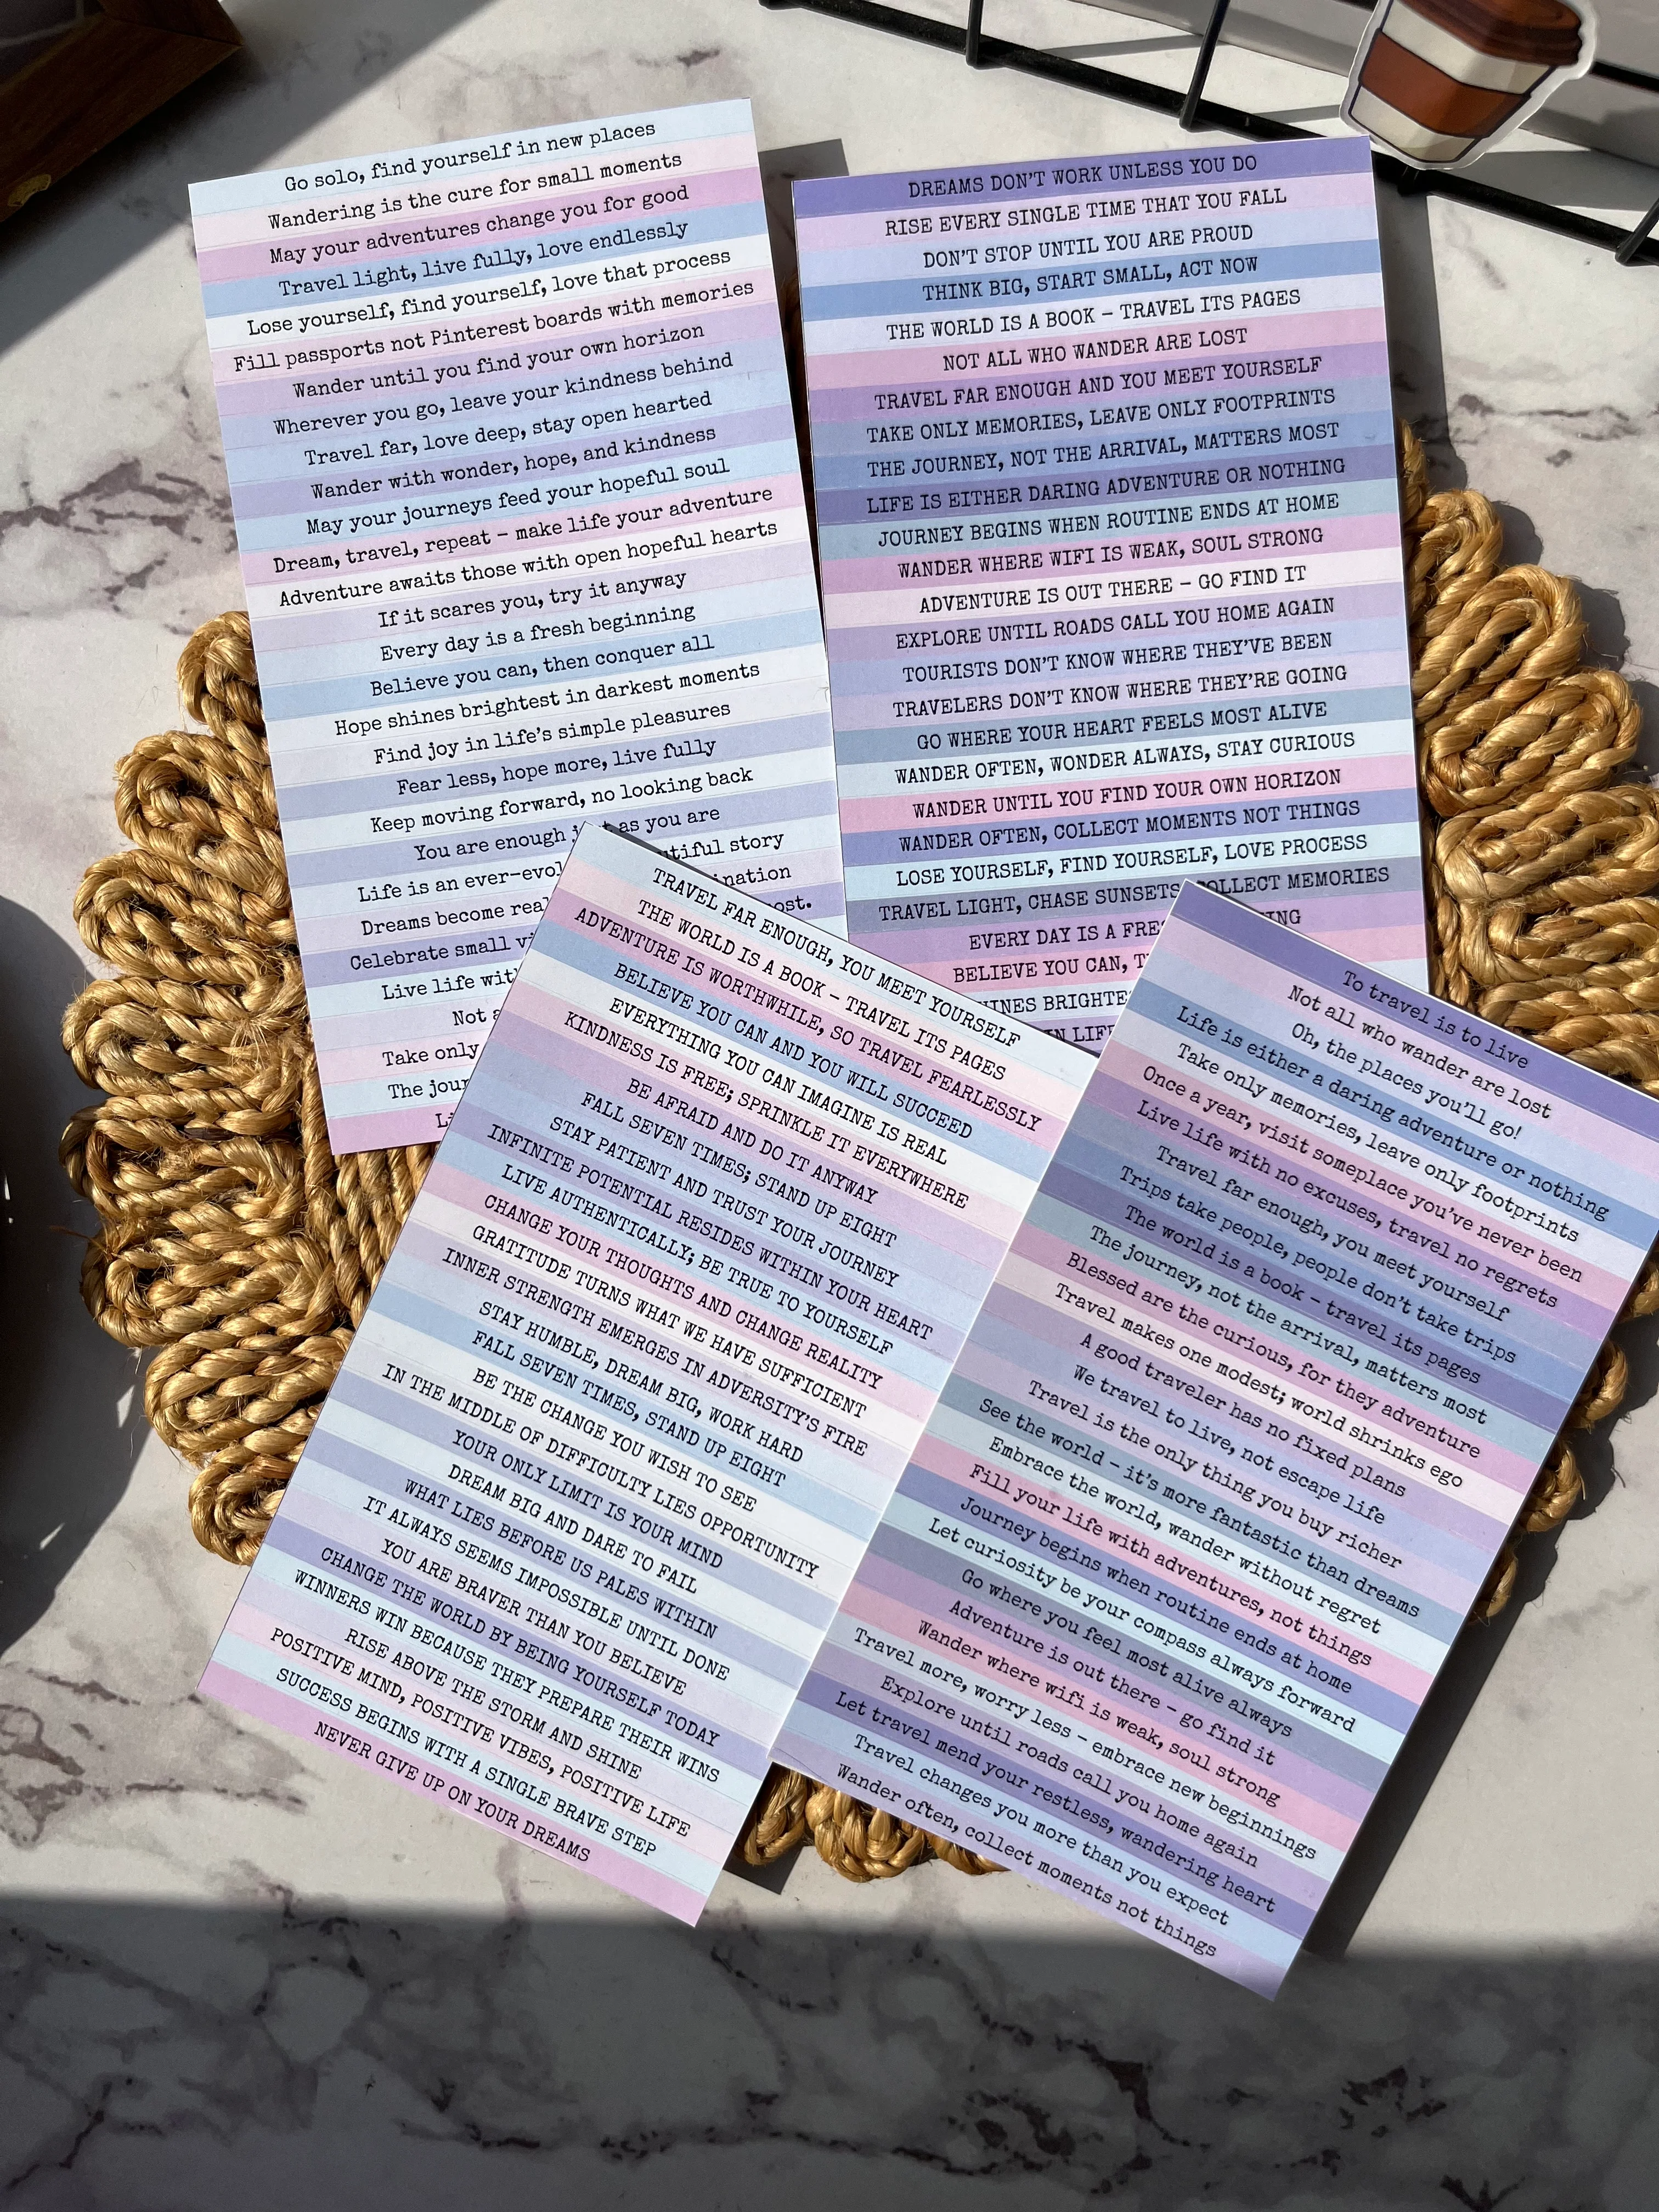 Go solo, find yourself in new places
Wandering is the cure for small moments
May your adventures change you for good
Travel light, live fully, love endlessly
Lose yourself, find yourself, love that process
Fill passports not Pinterest boards with memories
Wander until you find your own horizon
Wherever you go, leave your kindness behind
Travel far, love deep, stay open hearted
Wander with wonder, hope, and kindness
May your journeys feed your hopeful soul
Dream, travel, repeat – make life your adventure
Adventure awaits those with open hopeful hearts
If it scares you, try it anyway
Every day is a fresh beginning
Believe you can, then conquer all
Hope shines brightest in darkest moments
Find joy in life's simple pleasures
Fear less, hope more, live fully
Keep moving forward, no looking back
You are enough as you are
Life is an story
Dreams become
Celebrate small
Live life
Not
Take only
The
DREAMS DON'T WORK UNLESS YOU DO
RISE EVERY SINGLE TIME THAT YOU FALL
DON'T STOP UNTIL YOU ARE PROUD
THINK BIG, START SMALL, ACT NOW
THE WORLD IS A BOOK – TRAVEL ITS PAGES
NOT ALL WHO WANDER ARE LOST
TRAVEL FAR ENOUGH AND YOU MEET YOURSELF
TAKE ONLY MEMORIES, LEAVE ONLY FOOTPRINTS
THE JOURNEY, NOT THE ARRIVAL, MATTERS MOST
LIFE IS EITHER DARING ADVENTURE OR NOTHING
JOURNEY BEGINS WHEN ROUTINE ENDS AT HOME
WANDER WHERE WIFI IS WEAK, SOUL STRONG
ADVENTURE IS OUT THERE – GO FIND IT
EXPLORE UNTIL ROADS CALL YOU HOME AGAIN
TOURISTS DON'T KNOW WHERE THEY'VE BEEN
TRAVELERS DON'T KNOW WHERE THEY'RE GOING
GO WHERE YOUR HEART FEELS MOST ALIVE
WANDER OFTEN, WONDER ALWAYS, STAY CURIOUS
WANDER UNTIL YOU FIND YOUR OWN HORIZON
WANDER OFTEN, COLLECT MOMENTS NOT THINGS
LOSE YOURSELF, FIND YOURSELF, LOVE PROCESS
TRAVEL LIGHT, CHASE SUNSETS, COLLECT MEMORIES
EVERY DAY IS A
BELIEVE YOU CAN,
IN
TRAVEL FAR ENOUGH, YOU MEET YOURSELF
THE WORLD IS A BOOK – TRAVEL ITS PAGES
ADVENTURE IS WORTHWHILE, SO TRAVEL FEARLESSLY
BELIEVE YOU CAN AND YOU WILL SUCCEED
EVERYTHING YOU CAN IMAGINE IS REAL
KINDNESS IS FREE; SPRINKLE IT EVERYWHERE
BE AFRAID AND DO IT ANYWAY
FALL SEVEN TIMES; STAND UP EIGHT
STAY PATIENT AND TRUST YOUR JOURNEY
INFINITE POTENTIAL RESIDES WITHIN YOUR HEART
LIVE AUTHENTICALLY; BE TRUE TO YOURSELF
CHANGE YOUR THOUGHTS AND CHANGE REALITY
GRATITUDE TURNS WHAT WE HAVE SUFFICIENT
INNER STRENGTH EMERGES IN ADVERSITY'S FIRE
STAY HUMBLE, DREAM BIG, WORK HARD
FALL SEVEN TIMES, STAND UP EIGHT
BE THE CHANGE YOU WISH TO SEE
IN THE MIDDLE OF DIFFICULTY LIES OPPORTUNITY
YOUR ONLY LIMIT IS YOUR MIND
DREAM BIG AND DARE TO FAIL
WHAT LIES BEFORE US PALES WITHIN
IT ALWAYS SEEMS IMPOSSIBLE UNTIL DONE
YOU ARE BRAVER THAN YOU BELIEVE
CHANGE THE WORLD BY BEING YOURSELF TODAY
WINNERS WIN BECAUSE THEY PREPARE THEIR WINS
RISE ABOVE THE STORM AND SHINE
POSITIVE MIND, POSITIVE VIBES, POSITIVE LIFE
SUCCESS BEGINS WITH A SINGLE BRAVE STEP
NEVER GIVE UP ON YOUR DREAMS
To travel is to live
Not all who wander are lost
Oh, the places you'll go!
Life is either a daring adventure or nothing
Take only memories, leave only footprints
Once a year, visit someplace you've never been
Live life with no excuses, travel no regrets
Travel far enough, you meet yourself
Trips take people, people don't take trips
The world is a book – travel its pages
The journey, not the arrival, matters most
Blessed are the curious, for they adventure
Travel makes one modest; world shrinks ego
A good traveler has no fixed plans
We travel to live, not escape life
Travel is the only thing you buy richer
See the world – it's more fantastic than dreams
Embrace the world, wander without regret
Fill your life with adventures, not things
Journey begins when routine ends at home
Let curiosity be your compass always forward
Go where you feel most alive always
Adventure is out there – go find it
Wander where wifi is weak, soul strong
Travel more, worry less – embrace new beginnings
Explore until roads call you home again
Let travel mend your restless, wandering heart
Travel changes you more than you expect
Wander often, collect moments not things